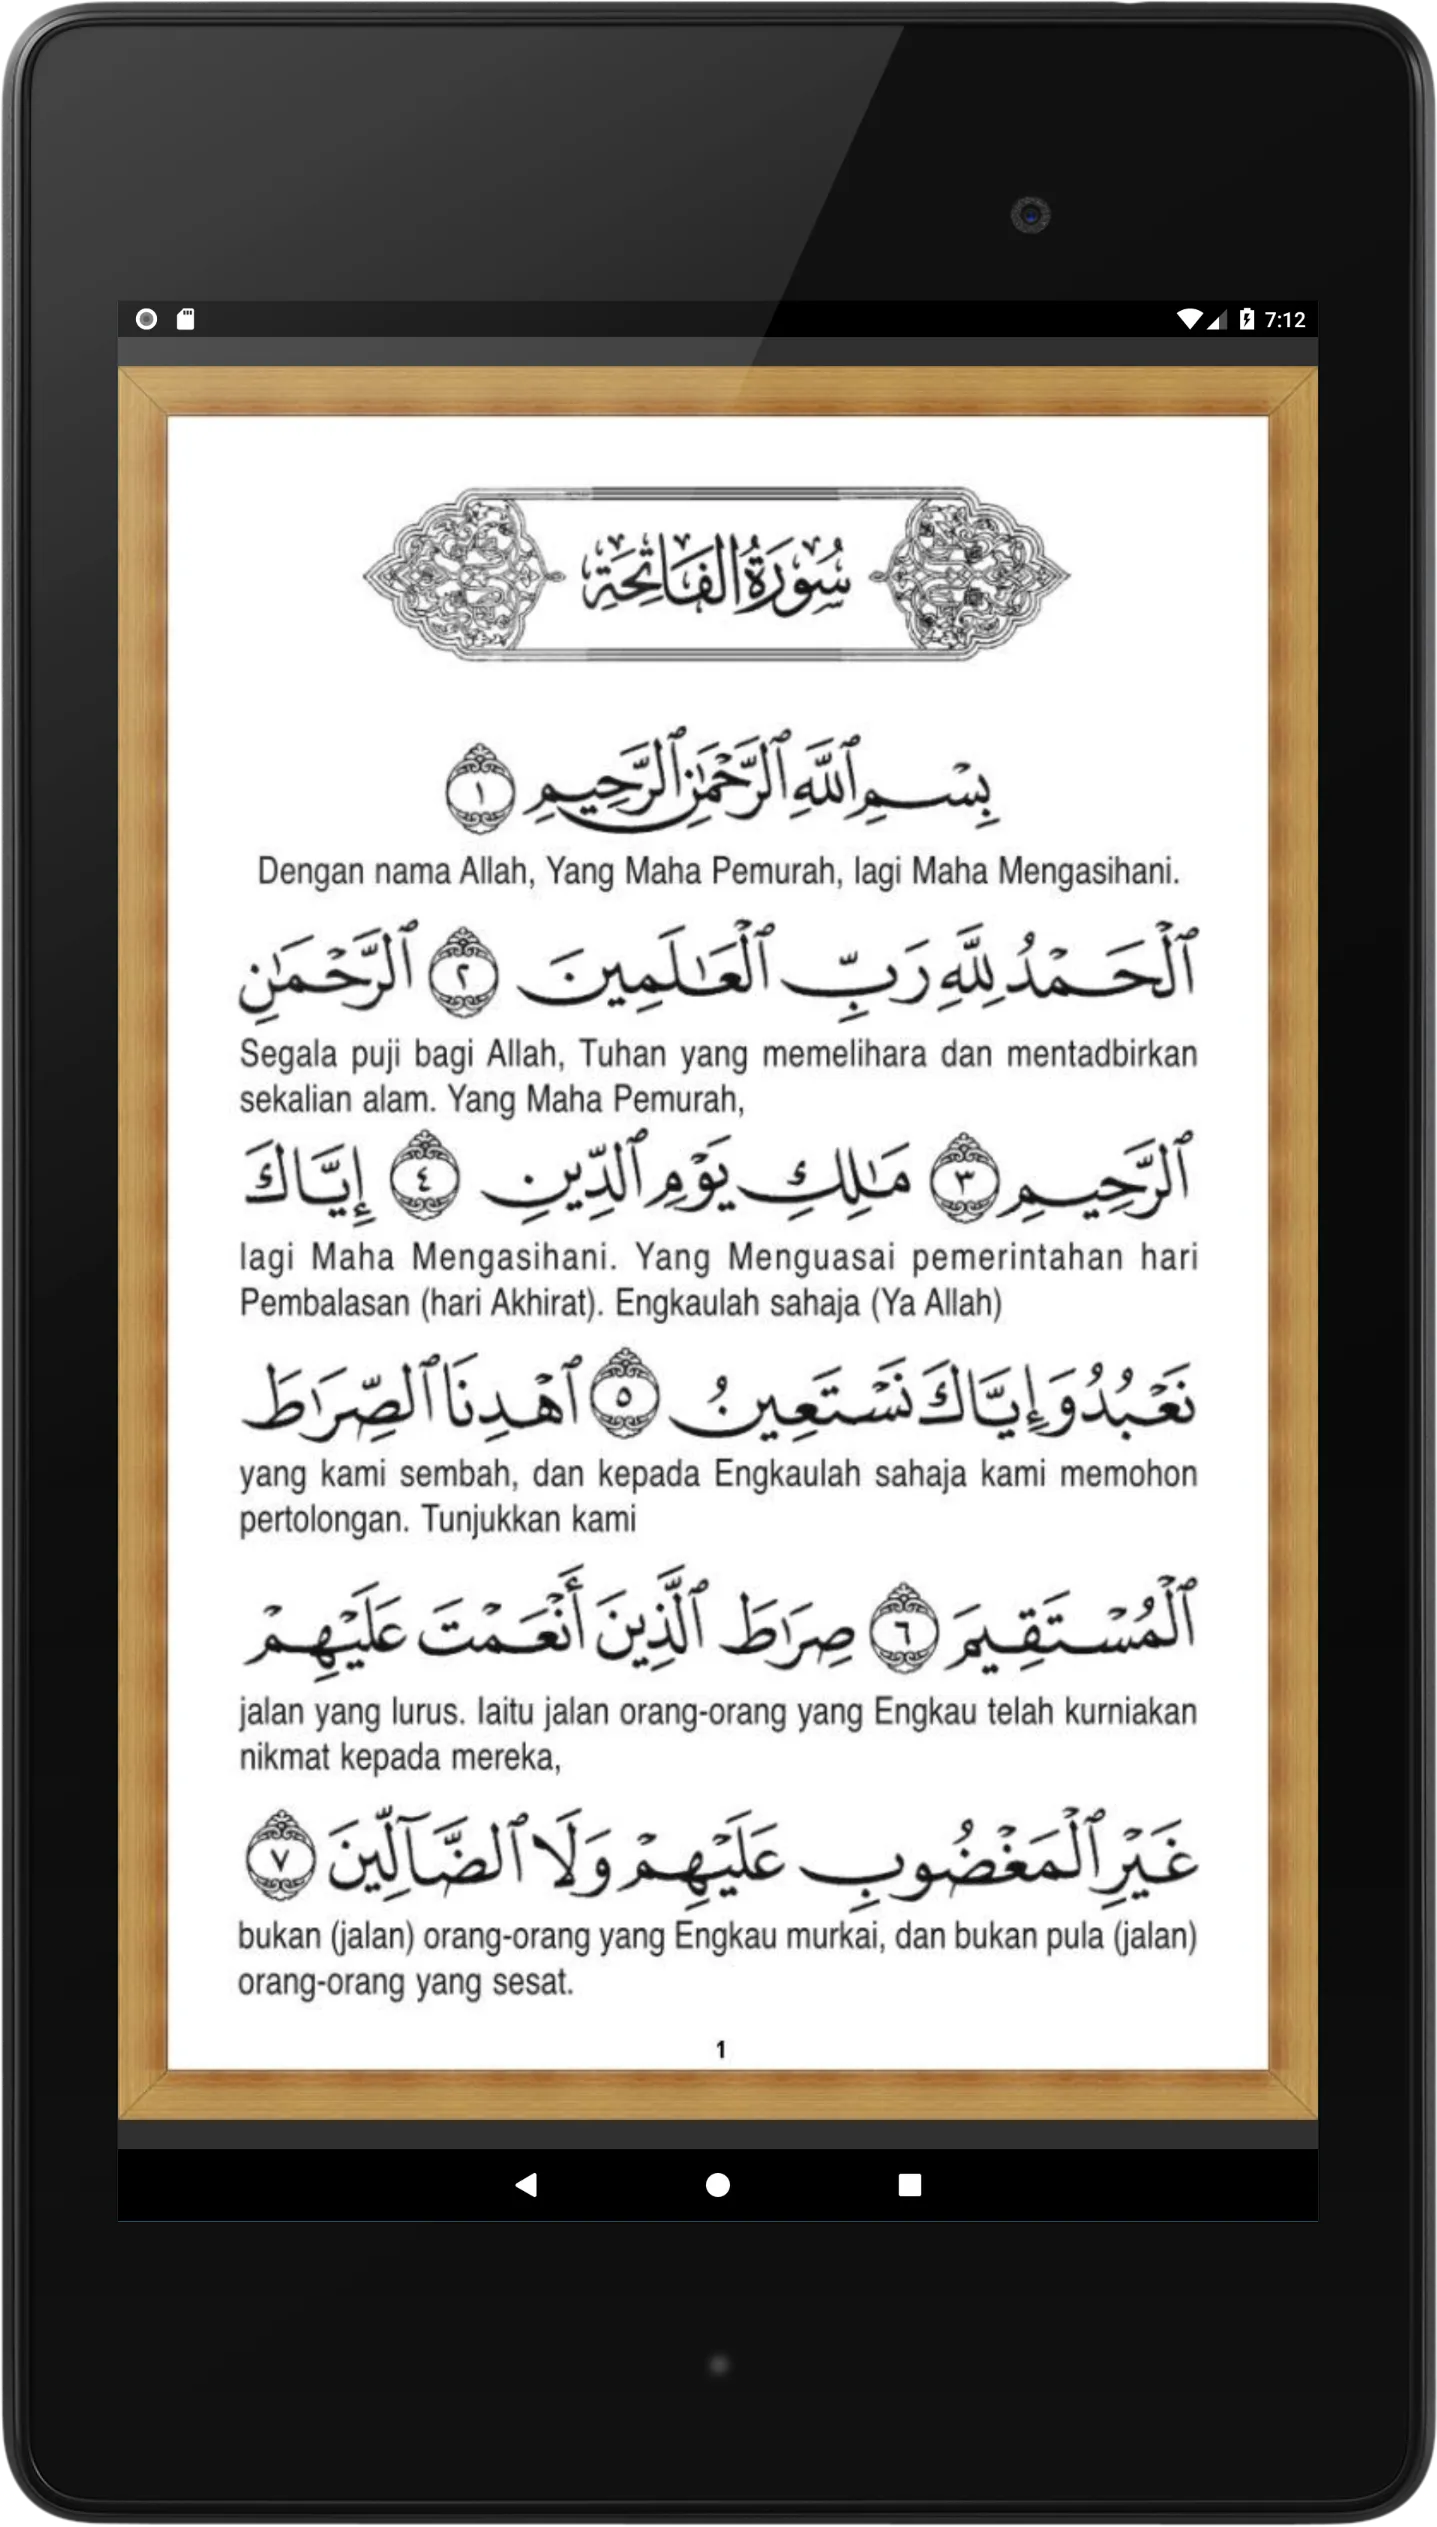 7:12
سُورَةُ الفَاتِحَةِ
بِسْمِ ٱللَّهِ ٱلرَّحْمَٰنِ ٱلرَّحِيمِ ١
Dengan nama Allah, Yang Maha Pemurah, lagi Maha Mengasihani.
ٱلْحَمْدُ لِلَّهِ رَبِّ ٱلْعَٰلَمِينَ ٢ ٱلرَّحْمَٰنِ
Segala puji bagi Allah, Tuhan yang memelihara dan mentadbirkan
sekalian alam. Yang Maha Pemurah,
ٱلرَّحِيمِ ٣ مَٰلِكِ يَوْمِ ٱلدِّينِ ٤ إِيَّاكَ
lagi Maha Mengasihani. Yang Menguasai pemerintahan hari
Pembalasan (hari Akhirat). Engkaulah sahaja (Ya Allah)
نَعْبُدُ وَإِيَّاكَ نَسْتَعِينُ ٥ ٱهْدِنَا ٱلصِّرَٰطَ
yang kami sembah, dan kepada Engkaulah sahaja kami memohon
pertolongan. Tunjukkan kami
ٱلْمُسْتَقِيمَ ٦ صِرَٰطَ ٱلَّذِينَ أَنْعَمْتَ عَلَيْهِمْ
jalan yang lurus. Iaitu jalan orang-orang yang Engkau telah kurniakan
nikmat kepada mereka,
غَيْرِ ٱلْمَغْضُوبِ عَلَيْهِمْ وَلَا ٱلضَّآلِّينَ ٧
bukan (jalan) orang-orang yang Engkau murkai, dan bukan pula (jalan)
orang-orang yang sesat.
1